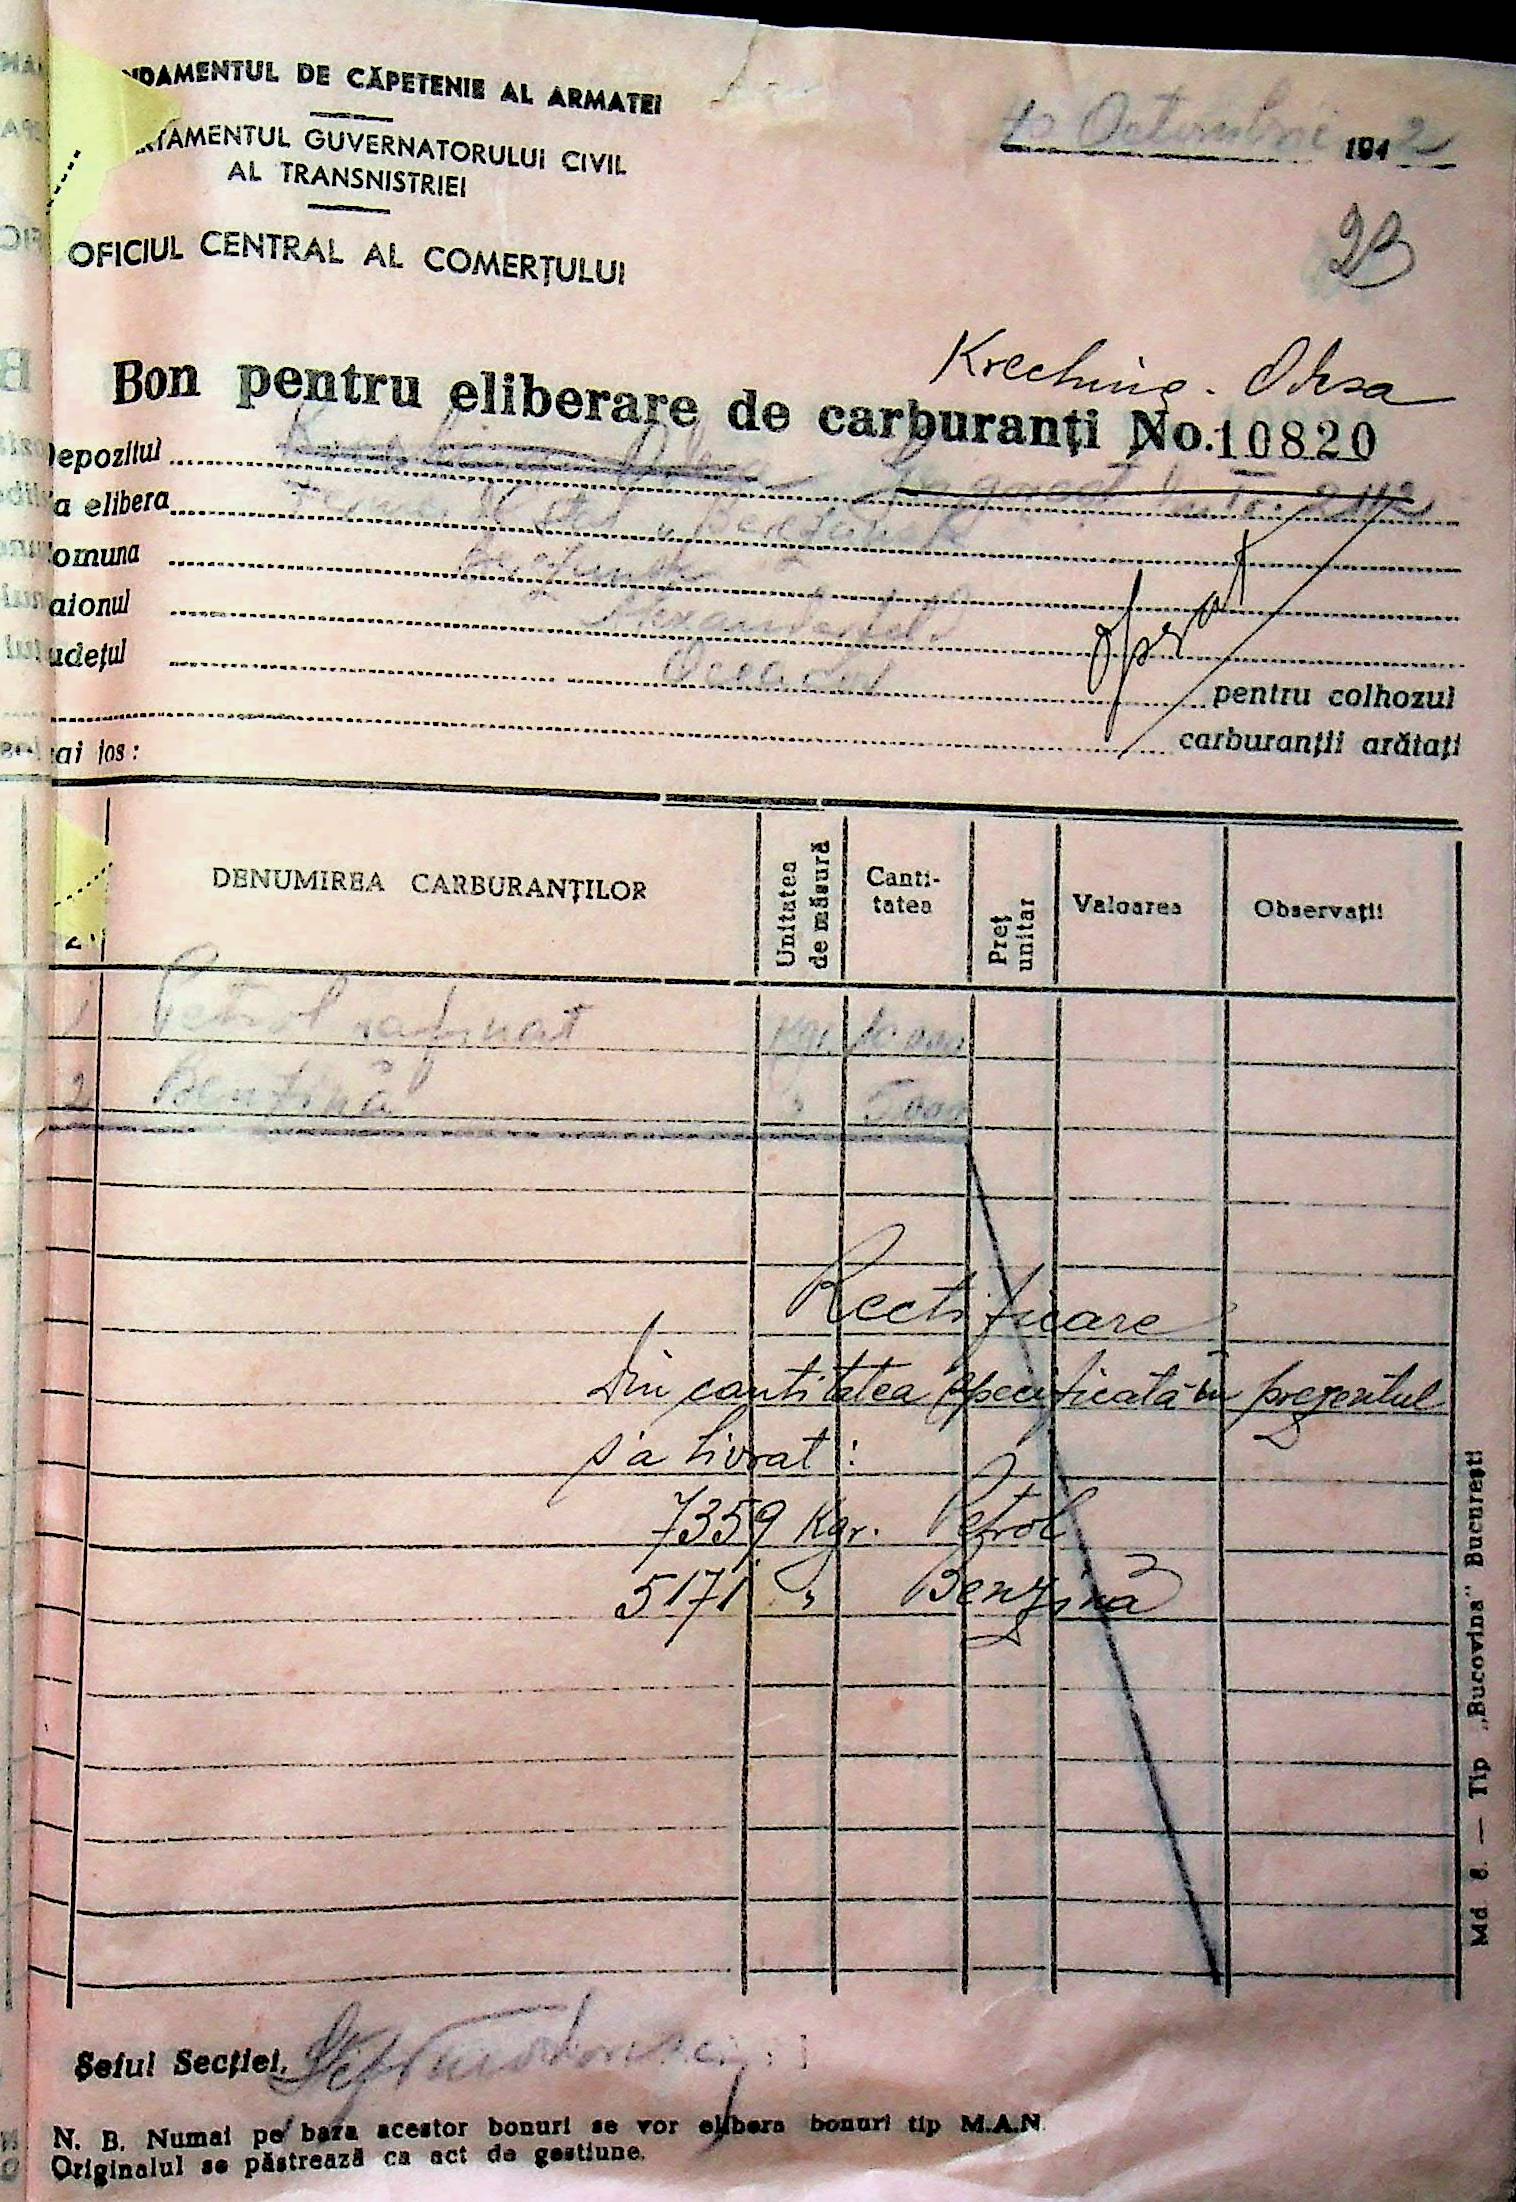 NDAMENTUL DE CĂPETENIE AL ARMATEI
RTAMENTUL GUVERNATORULUI CIVIL
AL TRANSNISTRIEI
OFICIUL CENTRAL AL COMERȚULUI
10 Octombrie 1942
23
Krechino - Odesa
Bon pentru eliberare de carburanți No. 10820
Depozitul
a elibera
omuna
aionul
udețul Oceacov pentru colhozul
carburanții arătați
ai jos:
DENUMIREA CARBURANȚILOR Unitatea de măsură Canti-tatea Preț unitar Valoarea Observații
1 Petrol rafinat Kgr. 10 000
2 Benzină " 5000
Rectificare
Din cantitatea specificată în prezentul
s'a livrat:
7359 Kgr. Petrol
5171 " Benzină
Șeful Secției,
N. B. Numai pe baza acestor bonuri se vor elibera bonuri tip M.A.N.
Originalul se păstrează ca act de gestiune.
Md. 8. — Tip „Bucovina" București